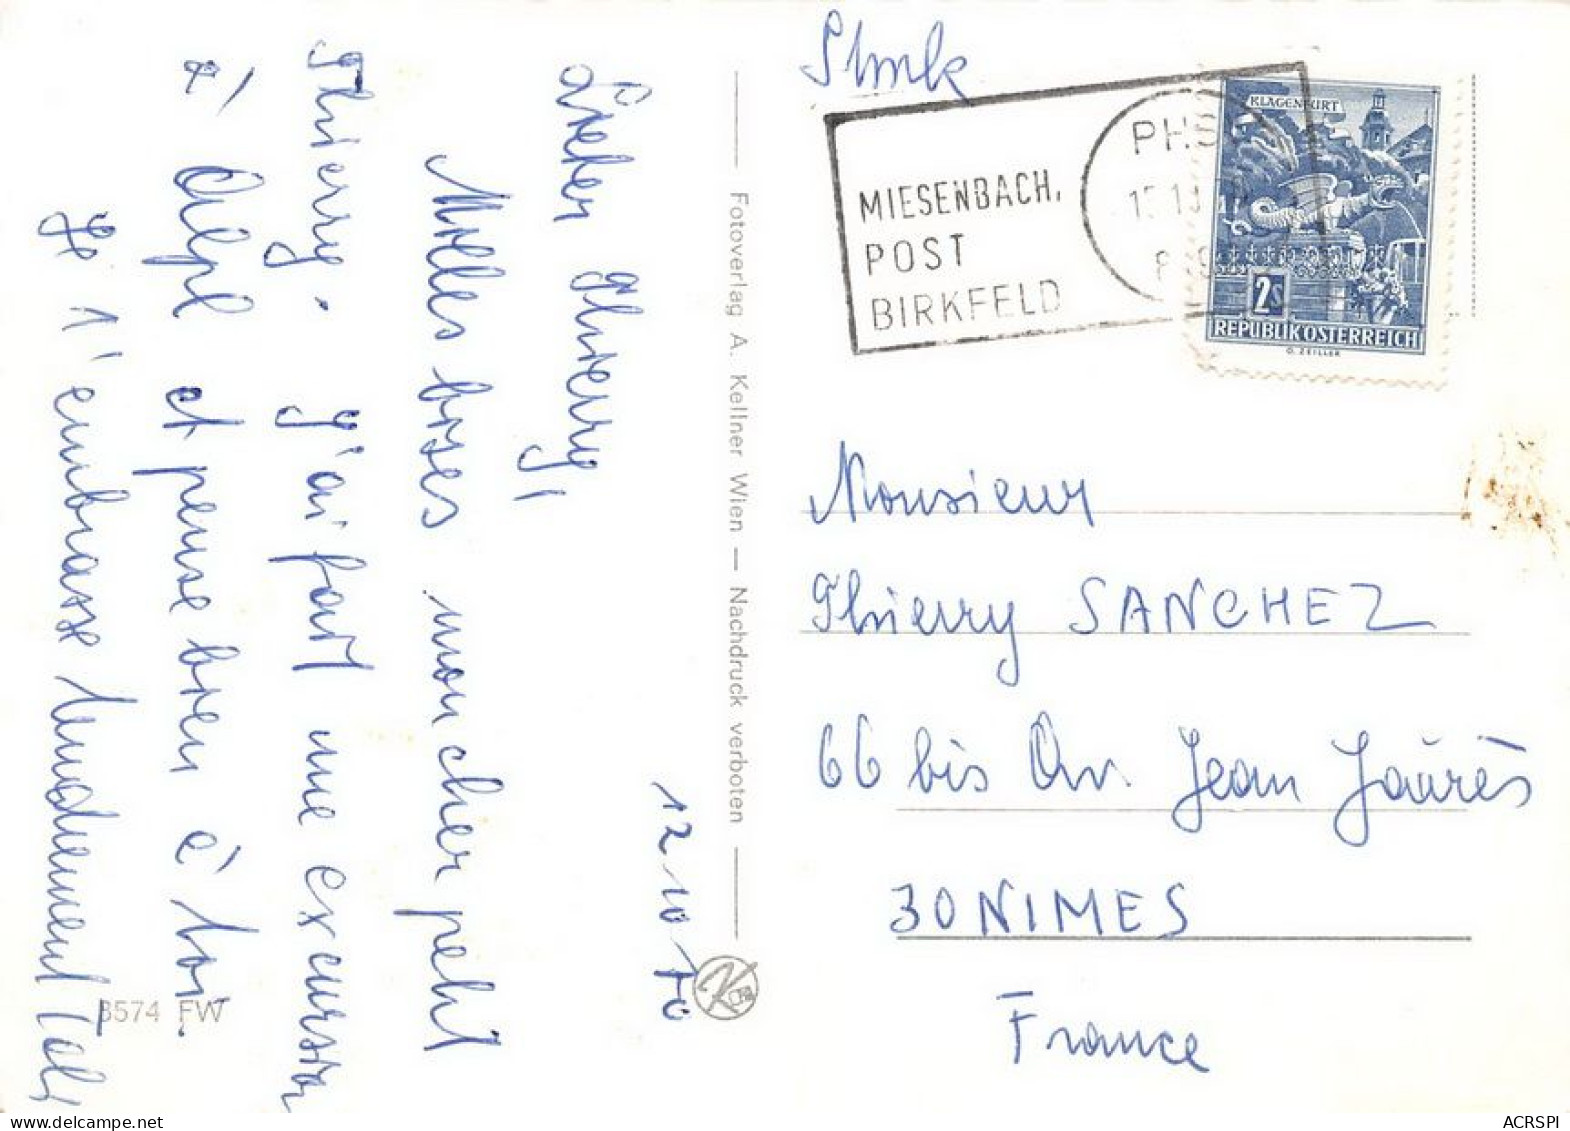 12 10 70
Lieber Thierry,
Milles bises mon cher petit
Thierry. J'ai fait une excursion
à l'Alpl et pense bien à toi.
Je t'embrasse tendrement
Fotoverlag A. Kellner Wien — Nachdruck verboten
8574 FW
Stmk
MIESENBACH,
POST
BIRKFELD
KLAGENFURT
2S
REPUBLIK ÖSTERREICH
O. ZEILLER
Monsieur
Thierry SANCHEZ
66 bis Av. Jean Jaurès
30 NIMES
France
ACRSPI